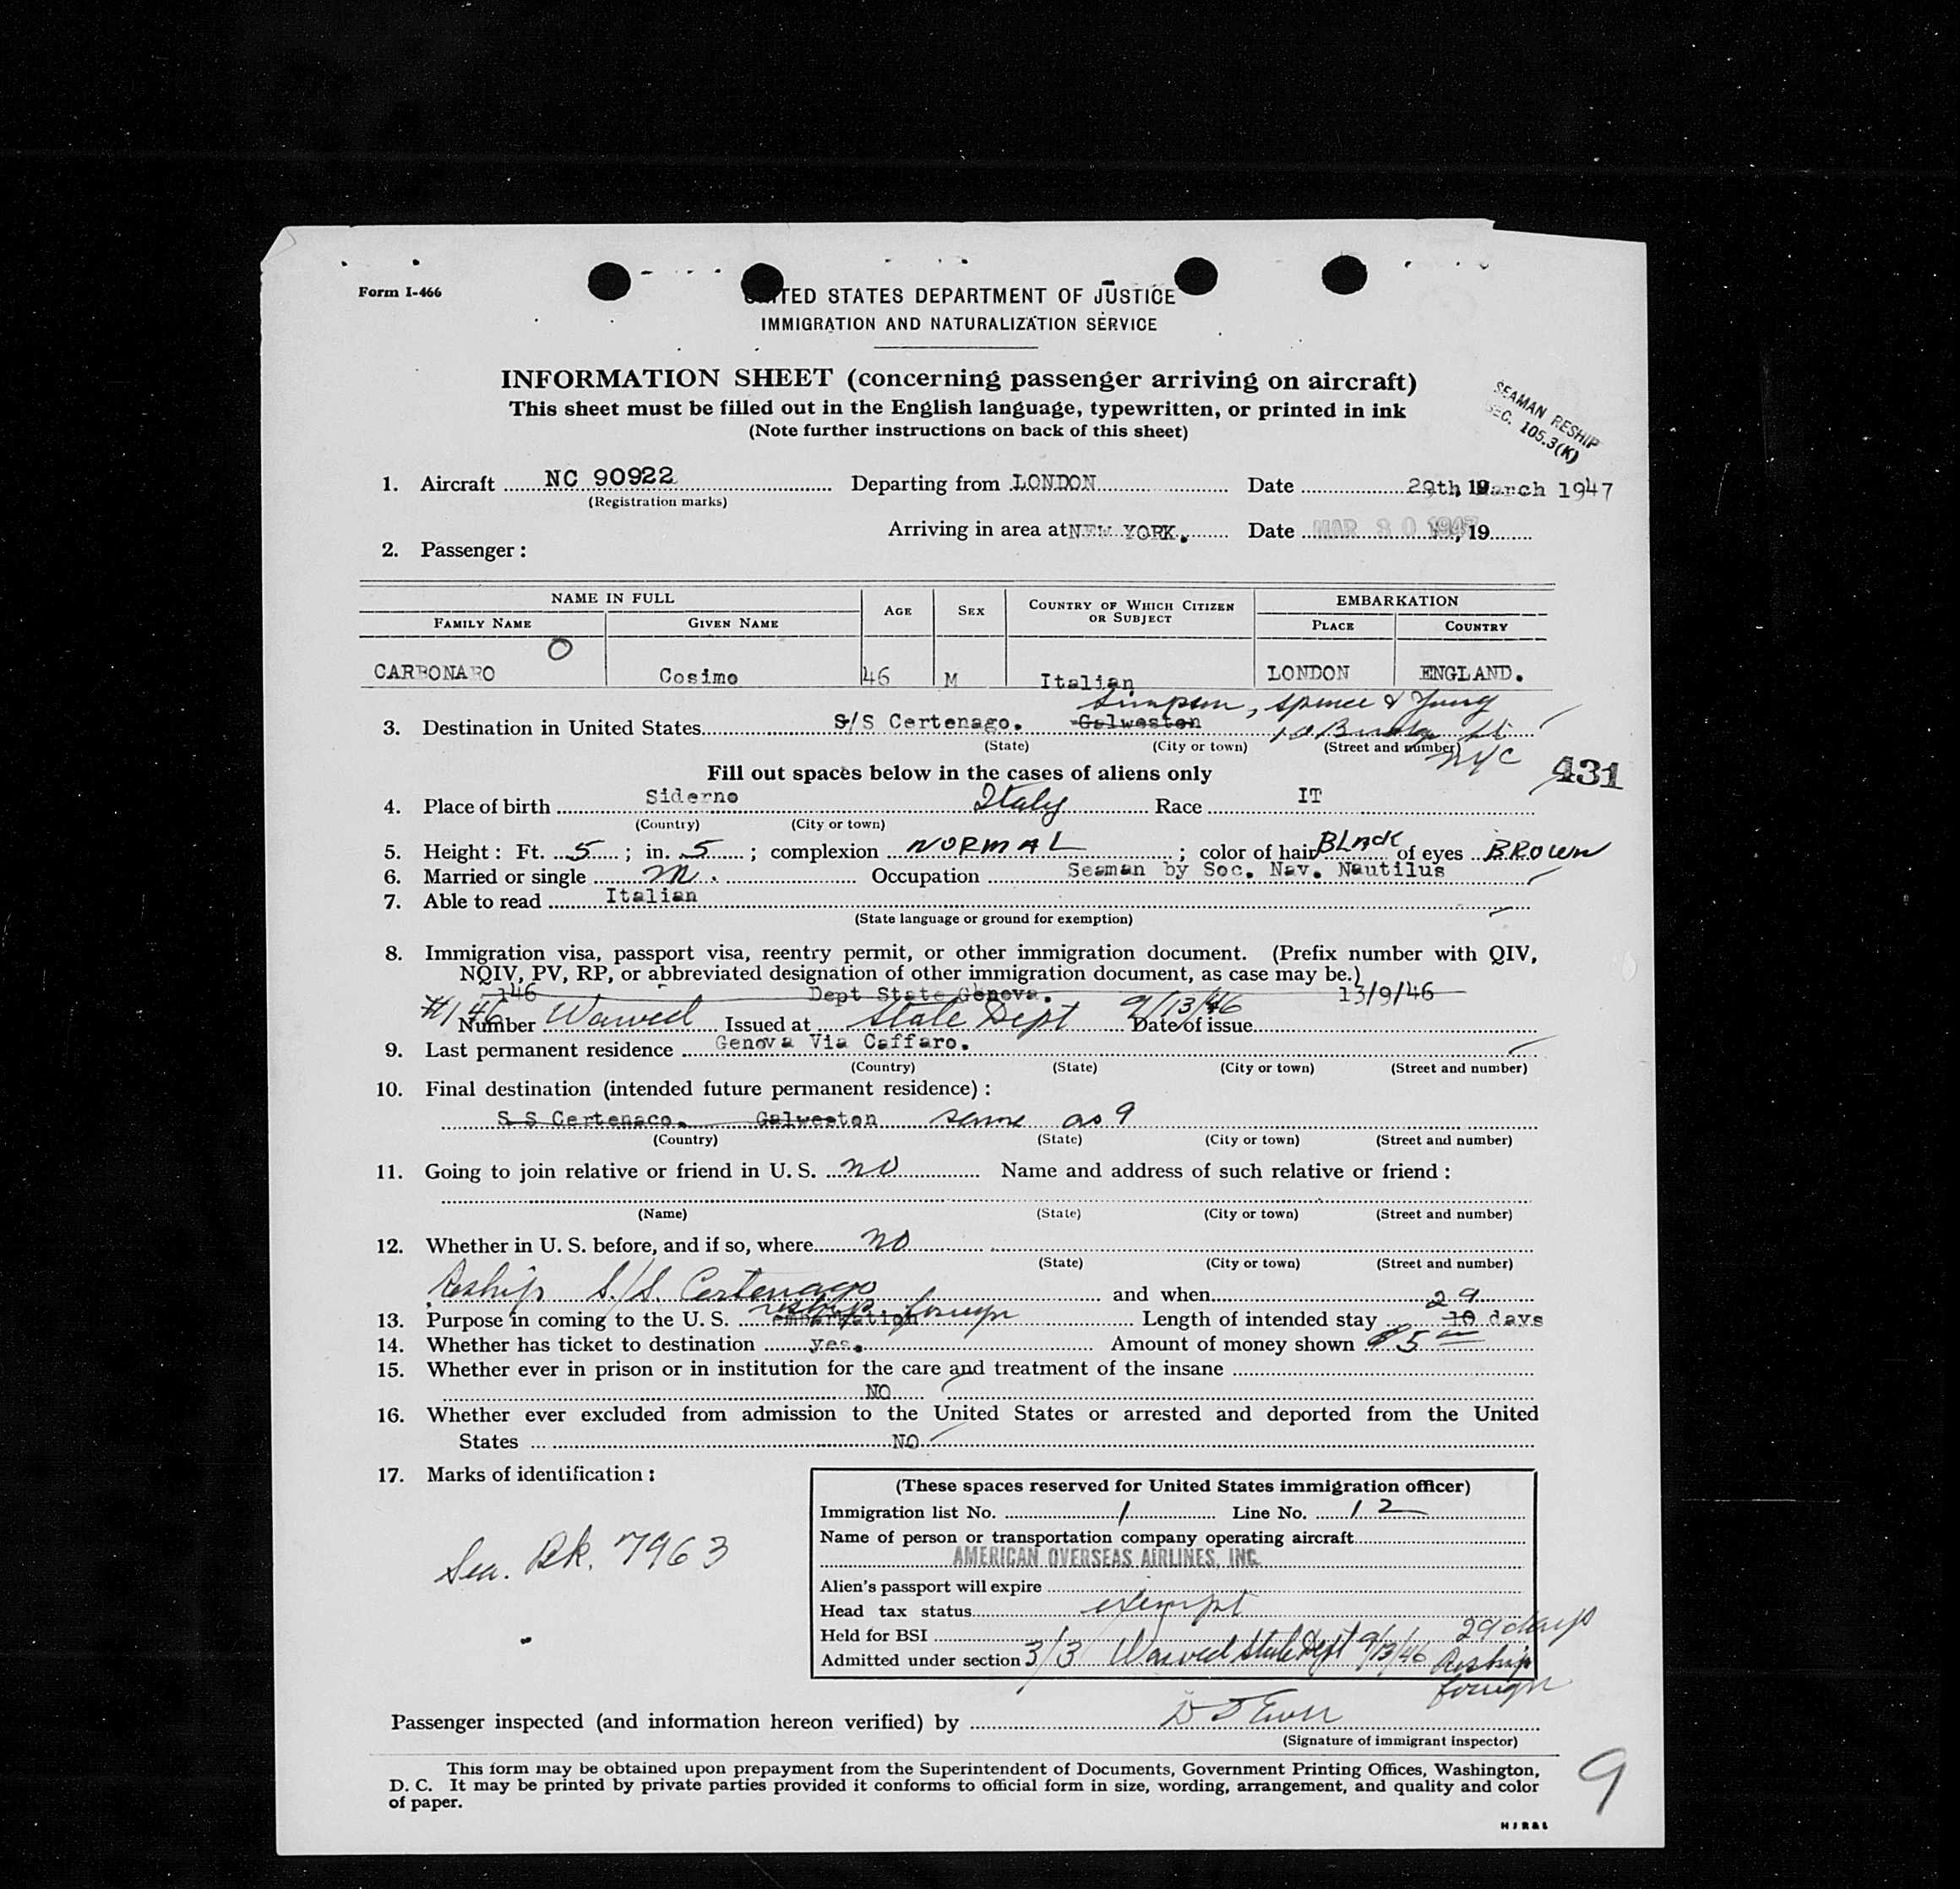 Form I-466
UNITED STATES DEPARTMENT OF JUSTICE
IMMIGRATION AND NATURALIZATION SERVICE
INFORMATION SHEET (concerning passenger arriving on aircraft)
This sheet must be filled out in the English language, typewritten, or printed in ink
(Note further instructions on back of this sheet)
SEAMAN RESHIP
SEC. 105.3(K)
1. Aircraft NC 90922 Departing from LONDON Date 29th March 1947, 19
(Registration marks)
Arriving in area at NEW YORK. Date MAR 30 1947, 19
2. Passenger:
NAME IN FULL AGE SEX COUNTRY OF WHICH CITIZEN OR SUBJECT EMBARKATION
FAMILY NAME GIVEN NAME PLACE COUNTRY
O
CARBONARO Cosimo 46 M Italian LONDON ENGLAND.
Simpson, Spence & Young
3. Destination in United States S/S Certenago. Galweston
(State) (City or town) (Street and number)
NYC
431
Fill out spaces below in the cases of aliens only
4. Place of birth Siderno Italy Race IT
(Country) (City or town)
5. Height: Ft. 5; in. 5; complexion NORMAL; color of hair BLACK of eyes BROWN
6. Married or single M. Occupation Seaman by Soc. Nav. Nautilus
7. Able to read Italian
(State language or ground for exemption)
8. Immigration visa, passport visa, reentry permit, or other immigration document. (Prefix number with QIV,
NQIV, PV, RP, or abbreviated designation of other immigration document, as case may be.)
146 Dept State Genova. 13/9/46
#146 Number Waived Issued at State Dept 9/13/46 Date of issue
9. Last permanent residence Genova Via Caffaro.
(Country) (State) (City or town) (Street and number)
10. Final destination (intended future permanent residence):
S S Certenaco. Galweston same as 9
(Country) (State) (City or town) (Street and number)
11. Going to join relative or friend in U. S. no Name and address of such relative or friend:
(Name) (State) (City or town) (Street and number)
12. Whether in U. S. before, and if so, where no
(State) (City or town) (Street and number)
Reship S./S. Certenago and when
29
13. Purpose in coming to the U. S. embarkation reship foreign Length of intended stay 10 days
14. Whether has ticket to destination yes. Amount of money shown $5
15. Whether ever in prison or in institution for the care and treatment of the insane
NO
16. Whether ever excluded from admission to the United States or arrested and deported from the United
States NO
17. Marks of identification:
Sea. Bk. 7963
(These spaces reserved for United States immigration officer)
Immigration list No. 1 Line No. 12
Name of person or transportation company operating aircraft
AMERICAN OVERSEAS AIRLINES, INC.
Alien's passport will expire
Head tax status exempt
Held for BSI 29 days
Admitted under section 3/3 Waived State Dept 9/13/46 Reship
foreign
Passenger inspected (and information hereon verified) by
(Signature of immigrant inspector)
This form may be obtained upon prepayment from the Superintendent of Documents, Government Printing Offices, Washington,
D. C. It may be printed by private parties provided it conforms to official form in size, wording, arrangement, and quality and color
of paper.
9
HJR&L